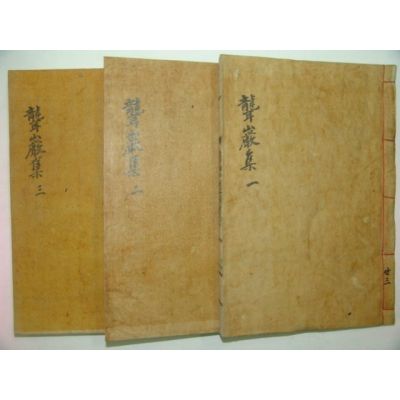 聾巖集 一
共三
聾巖集 二
聾巖集 三